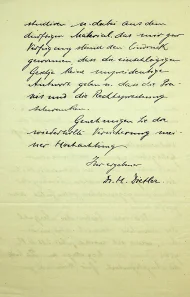 studieren u. dabei aus dem
dürftigen Material das mir zur
Verfügung stand den Eindruck
gewonnen, dass die einschlägigen
Gesetze keine unzweideutige
Antwort geben u. dass die Pra-
xis und die Rechtsprechung
schwanken.
Genehmigen Sie die
wiederholte Versicherung mei-
ner Hochachtung
Ihr ergebener
Dr. H.